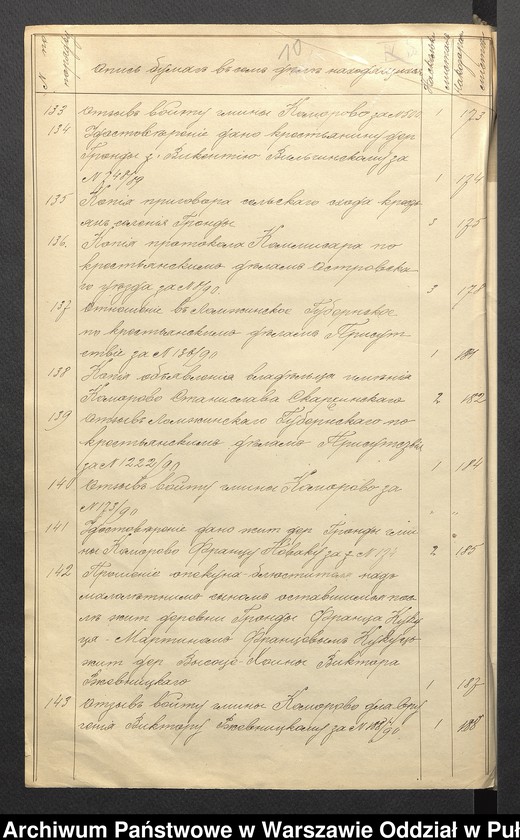 10
№ по порядку
Опись бумагъ въ семъ дѣлѣ находящихся
133 Отзывъ войту гмины Коморово за № 1 173
134 Удостовѣреніе дано крестьянину дер
Гронды Викентію за
№ 748/89 1 174
135 Копія приговора сельскаго схода крест
янъ селенья Гронды 3 175
136. Копія протокола Коммисара по
крестьянскимъ дѣламъ Островска-
го уѣзда за № /90. 3 178
137 Отношеніе въ Ломжинское Губернское
по крестьянскимъ дѣламъ Присут-
ствіе за № 136/90 1 181
138 Копія объявленія владѣльца имѣнія
Коморово Станислава Скаржинскаго 2 182
139 Отзывъ Ломжинскаго Губернскаго по
крестьянскимъ дѣламъ Присутствія
за № 1222/90 1 184
140 Отзывъ войту гмины Коморово за
№ 173/90 " "
141 Удостовѣреніе дано жит дер Гронды гми
ны Коморово Францу Новаку за № 2 185
142 Прошеніе опекуна-блюстителя надъ
малолѣтнимъ сыномъ оставшимся пос-
лѣ жит деревни Гронды Франца Куку
ца - Мартиномъ Францовымъ Кукуцъ
жит дер Высоце Виктора
Вжевницкаго 1 187
143 Отзывъ войту гмины Коморово для вру
ченія Виктору Вжевницкому за № /90 1 188
Archiwum Państwowe w Warszawie Oddział w Puł